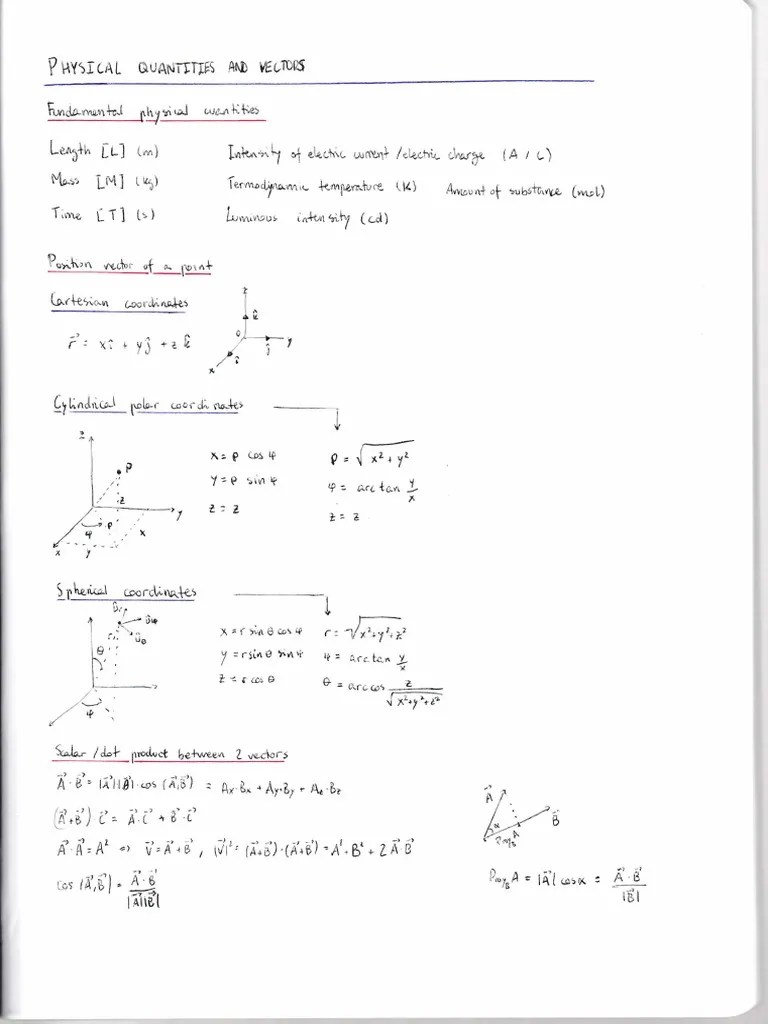 PHYSICAL QUANTITIES AND VECTORS
Fundamental physical wantities
Length [L] (m)
Intensity of electric current /electric charge (A / C)
Mass [M] (kg)
Termodynamic temperature (K) Amount of substance (mol)
Time [T] (s)
Luminous intensity (cd)
Position vector of a point
Cartesian coordinates
r⃗ = xî + yĵ + z k̂
z
k̂
0
ĵ
y
î
x
Cylindrical polar coordinates
z
P
z
φ
ρ
y
x
x
y
x = ρ cos φ
y = ρ sin φ
z = z
ρ = √x² + y²
φ = arctan y/x
z = z
Spherical coordinates
ûr
ûφ
ûθ
r
θ
φ
x = r sin θ cos φ
y = r sin θ sin φ
z = r cos θ
r = √x²+y²+z²
φ = arctan y/x
θ = arccos z/√x²+y²+z²
Scalar /dot product between 2 vectors
A⃗·B⃗ = |A⃗||B⃗|·cos (A⃗,B⃗) = Ax·Bx + Ay·By + Az·Bz
(A⃗+B⃗)·C⃗ = A⃗·C⃗ + B⃗·C⃗
A⃗·A⃗ = A² ⇒ V⃗ = A⃗+B⃗, |V⃗|² = (A⃗+B⃗)·(A⃗+B⃗) = A²+B²+2A⃗·B⃗
cos (A⃗,B⃗) = A⃗·B⃗/|A⃗||B⃗|
A⃗
B⃗
α
A
ProyB
ProyB A = |A⃗| cos α = A⃗·B⃗/|B⃗|